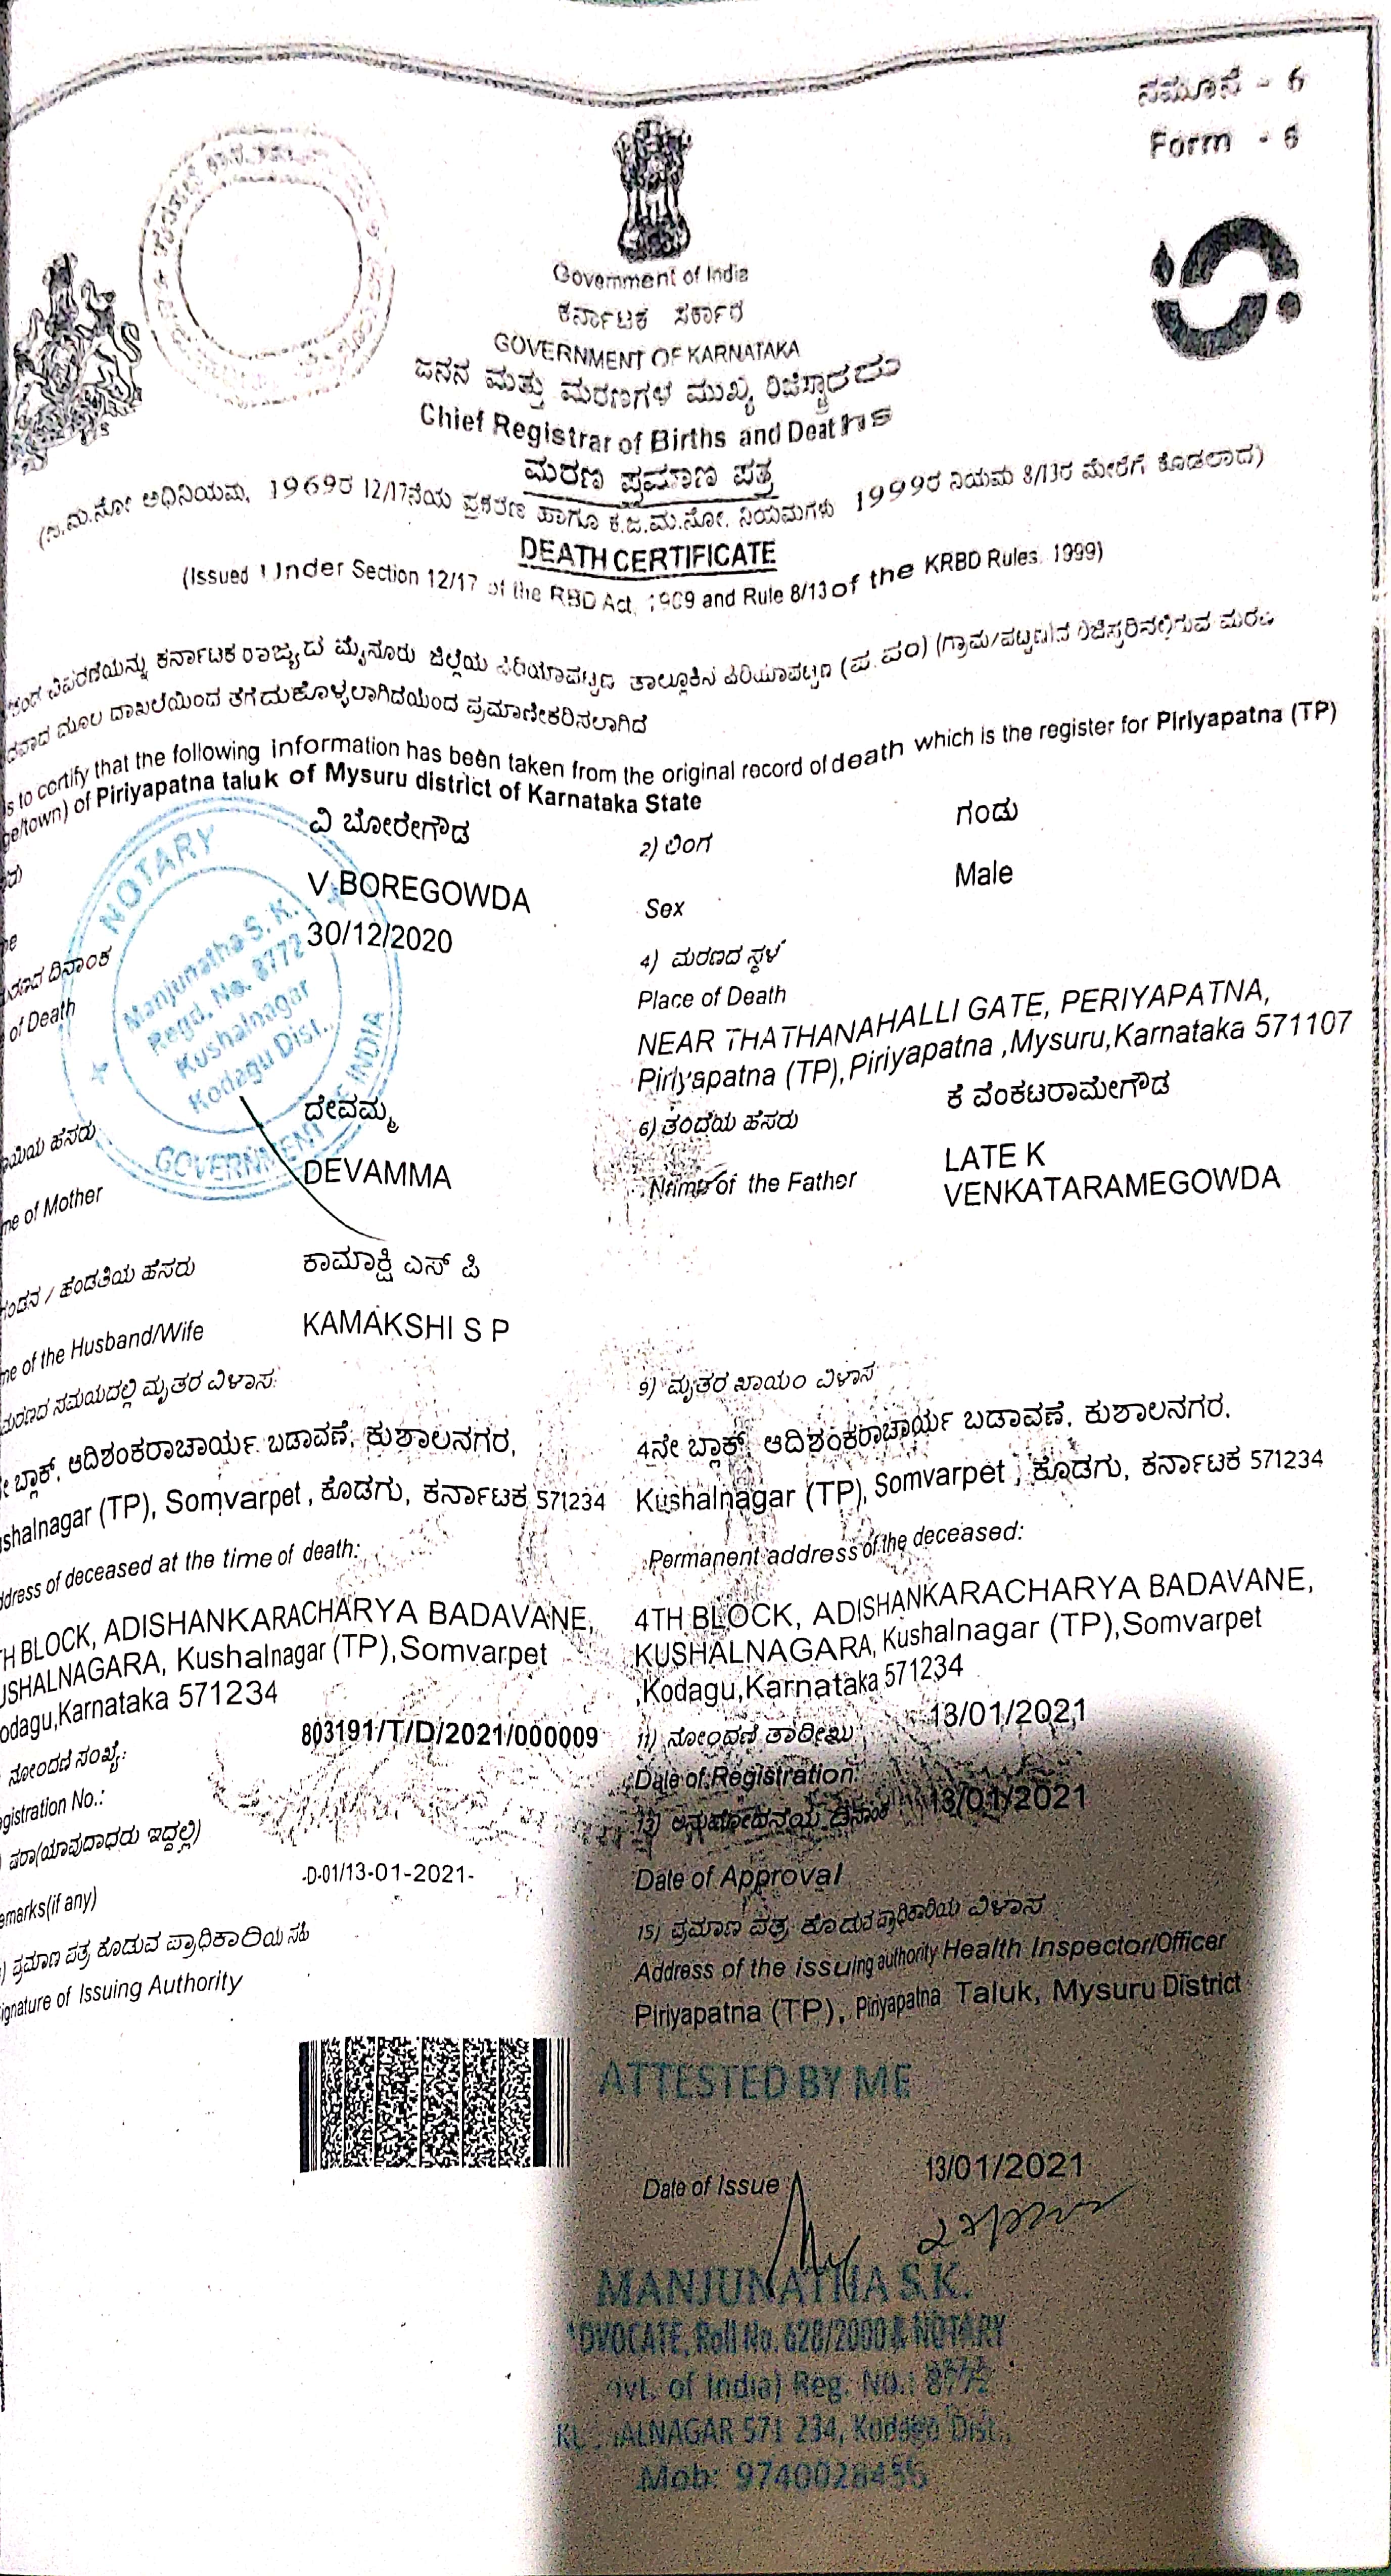 ನಮೂನೆ - 6
Form - 6
Government of India
ಕರ್ನಾಟಕ ಸರ್ಕಾರ
GOVERNMENT OF KARNATAKA
ಜನನ ಮತ್ತು ಮರಣಗಳ ಮುಖ್ಯ ರಿಜಿಸ್ಟ್ರಾರರು
Chief Registrar of Births and Deaths
ಮರಣ ಪ್ರಮಾಣ ಪತ್ರ
(ಜ.ಮ.ನೋ ಅಧಿನಿಯಮ, 1969ರ 12/17ನೆಯ ಪ್ರಕರಣ ಹಾಗೂ ಕ.ಜ.ಮ.ನೋ. ನಿಯಮಗಳು 1999ರ ನಿಯಮ 8/13ರ ಮೇರೆಗೆ ಕೊಡಲಾದ)
DEATH CERTIFICATE
(Issued Under Section 12/17 of the RBD Act, 1969 and Rule 8/13 of the KRBD Rules, 1999)
ವಿವರಣೆಯನ್ನು ಕರ್ನಾಟಕ ರಾಜ್ಯದ ಮೈಸೂರು ಜಿಲ್ಲೆಯ ಪಿರಿಯಾಪಟ್ಟಣ ತಾಲ್ಲೂಕಿನ ಪಿರಿಯಾಪಟ್ಟಣ (ಪ.ಪಂ) (ಗ್ರಾಮ/ಪಟ್ಟಣ)ದ ರಿಜಿಸ್ತರಿನಲ್ಲಿರುವ ಮರಣ
ಮೂಲ ದಾಖಲೆಯಿಂದ ತೆಗೆದುಕೊಳ್ಳಲಾಗಿದೆಯೆಂದ ಪ್ರಮಾಣೀಕರಿಸಲಾಗಿದೆ
is to certify that the following information has been taken from the original record of death which is the register for Piriyapatna (TP)
ge/town) of Piriyapatna taluk of Mysuru district of Karnataka State
ವಿ ಬೋರೇಗೌಡ 2) ಲಿಂಗ ಗಂಡು
V BOREGOWDA Sex Male
30/12/2020 4) ಮರಣದ ಸ್ಥಳ
ದಿನಾಂಕ
of Death Place of Death
NEAR THATHANAHALLI GATE, PERIYAPATNA,
Piriyapatna (TP),Piriyapatna ,Mysuru,Karnataka 571107
NOTARY
Manjunatha S. K.
Regd. No. 8772
Kushalnagar
Kodagu Dist.
GOVERNMENT OF INDIA
ಹೆಸರು ದೇವಮ್ಮ 6) ತಂದೆಯ ಹೆಸರು ಕೆ ವೆಂಕಟರಾಮೇಗೌಡ
me of Mother DEVAMMA Name of the Father LATE K
VENKATARAMEGOWDA
ಗಂಡನ / ಹೆಂಡತಿಯ ಹೆಸರು ಕಾಮಾಕ್ಷಿ ಎಸ್ ಪಿ
me of the Husband/Wife KAMAKSHI S P
ಮರಣದ ಸಮಯದಲ್ಲಿ ಮೃತರ ವಿಳಾಸ: 9) ಮೃತರ ಖಾಯಂ ವಿಳಾಸ
ನೇ ಬ್ಲಾಕ್, ಆದಿಶಂಕರಾಚಾರ್ಯ ಬಡಾವಣೆ, ಕುಶಾಲನಗರ, 4ನೇ ಬ್ಲಾಕ್, ಆದಿಶಂಕರಾಚಾರ್ಯ ಬಡಾವಣೆ, ಕುಶಾಲನಗರ,
shalnagar (TP), Somvarpet , ಕೊಡಗು, ಕರ್ನಾಟಕ 571234 Kushalnagar (TP), Somvarpet , ಕೊಡಗು, ಕರ್ನಾಟಕ 571234
ddress of deceased at the time of death: Permanent address of the deceased:
TH BLOCK, ADISHANKARACHARYA BADAVANE, 4TH BLOCK, ADISHANKARACHARYA BADAVANE,
USHALNAGARA, Kushalnagar (TP),Somvarpet KUSHALNAGARA, Kushalnagar (TP),Somvarpet
odagu,Karnataka 571234 ,Kodagu,Karnataka 571234
ನೋಂದಣಿ ಸಂಖ್ಯೆ: 803191/T/D/2021/000009 11) ನೋಂದಣಿ ತಾರೀಖು 13/01/2021
gistration No.: Date of Registration:
ಷರಾ(ಯಾವುದಾದರು ಇದ್ದಲ್ಲಿ) 13) ಅನುಮೋದನೆಯ ದಿನಾಂಕ 13/01/2021
emarks(if any) -D-01/13-01-2021- Date of Approval
ಪ್ರಮಾಣ ಪತ್ರ ಕೊಡುವ ಪ್ರಾಧಿಕಾರಿಯ ಸಹಿ 15) ಪ್ರಮಾಣ ಪತ್ರ ಕೊಡುವ ಪ್ರಾಧಿಕಾರಿಯ ವಿಳಾಸ
ignature of Issuing Authority Address of the issuing authority Health Inspector/Officer
Piriyapatna (TP), Piriyapatna Taluk, Mysuru District
ATTESTED BY ME
Date of Issue 13/01/2021
MANJUNATHA S.K.
DVOCATE, Roll No. 628/2000 & NOTARY
ovt. of India) Reg. No.: 8772
ALNAGAR 571 234, Kodagu Dist.,
Mob: 9740028456